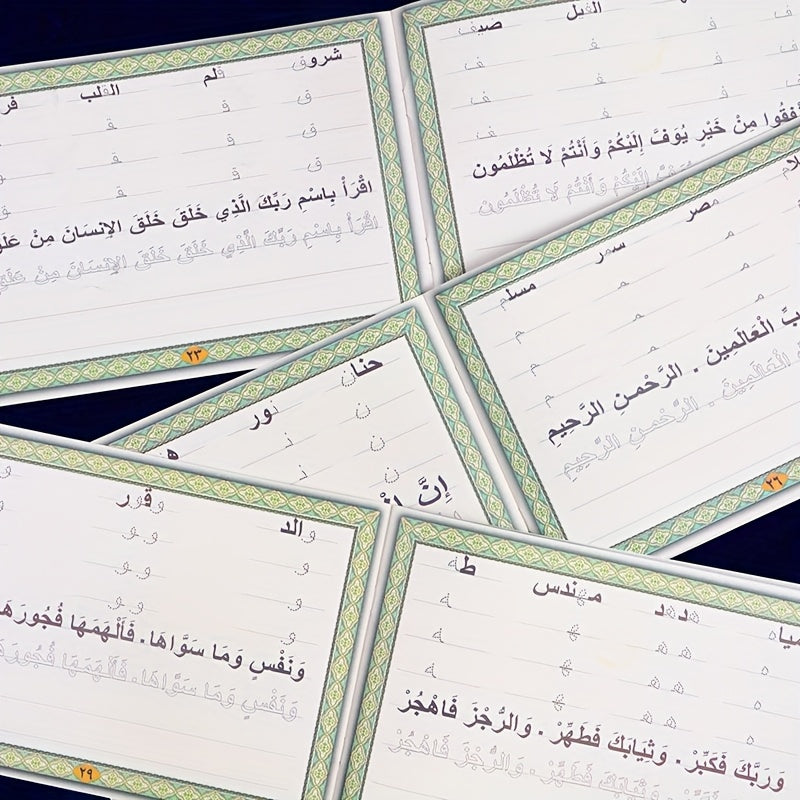 شروق قلم القلب
ق ق ق
ق ق ق
ق ق ق
اقْرَأْ بِاسْمِ رَبِّكَ الَّذِي خَلَقَ خَلَقَ الإِنسَانَ مِنْ
اقْرَأْ بِاسْمِ رَبِّكَ الَّذِي خَلَقَ خَلَقَ الإِنسَانَ مِنْ عَلَقٍ
٢٣
الفيل صيف
ف ف ف
ف ف ف
ف ف ف
مِنْ خَيْرٍ يُوَفَّ إِلَيْكُمْ وَأَنْتُمْ لَا تُظْلَمُون
إِلَيْكُمْ وَأَنْتُمْ لَا تُظْلَمُون
مصر سمر مسلم
م م م
م م م
م م م
الْعَالَمِينَ . الرَّحْمنِ الرَّحِيمِ
الْعَالَمِينَ . الرَّحْمنِ الرَّحِيمِ
٢٦
حنان نور
ن ن
ن ن
ن
إِنَّ
والد وقور
و و و
و و و
و و و
وَنَفْسٍ وَمَا سَوَّاهَا. فَأَلْهَمَهَا فُجُورَهَا
وَنَفْسٍ وَمَا سَوَّاهَا. فَأَلْهَمَهَا فُجُورَهَا
٢٩
مياه هدهد مهندس طه
ه ه ه ه ه
ه ه ه ه ه
ه ه ه ه ه
وَرَبَّكَ فَكَبِّرْ. وَثِيَابَكَ فَطَهِّرْ. وَالرُّجْزَ فَاهْجُرْ
وَثِيَابَكَ فَطَهِّرْ. وَالرُّجْزَ فَاهْجُرْ